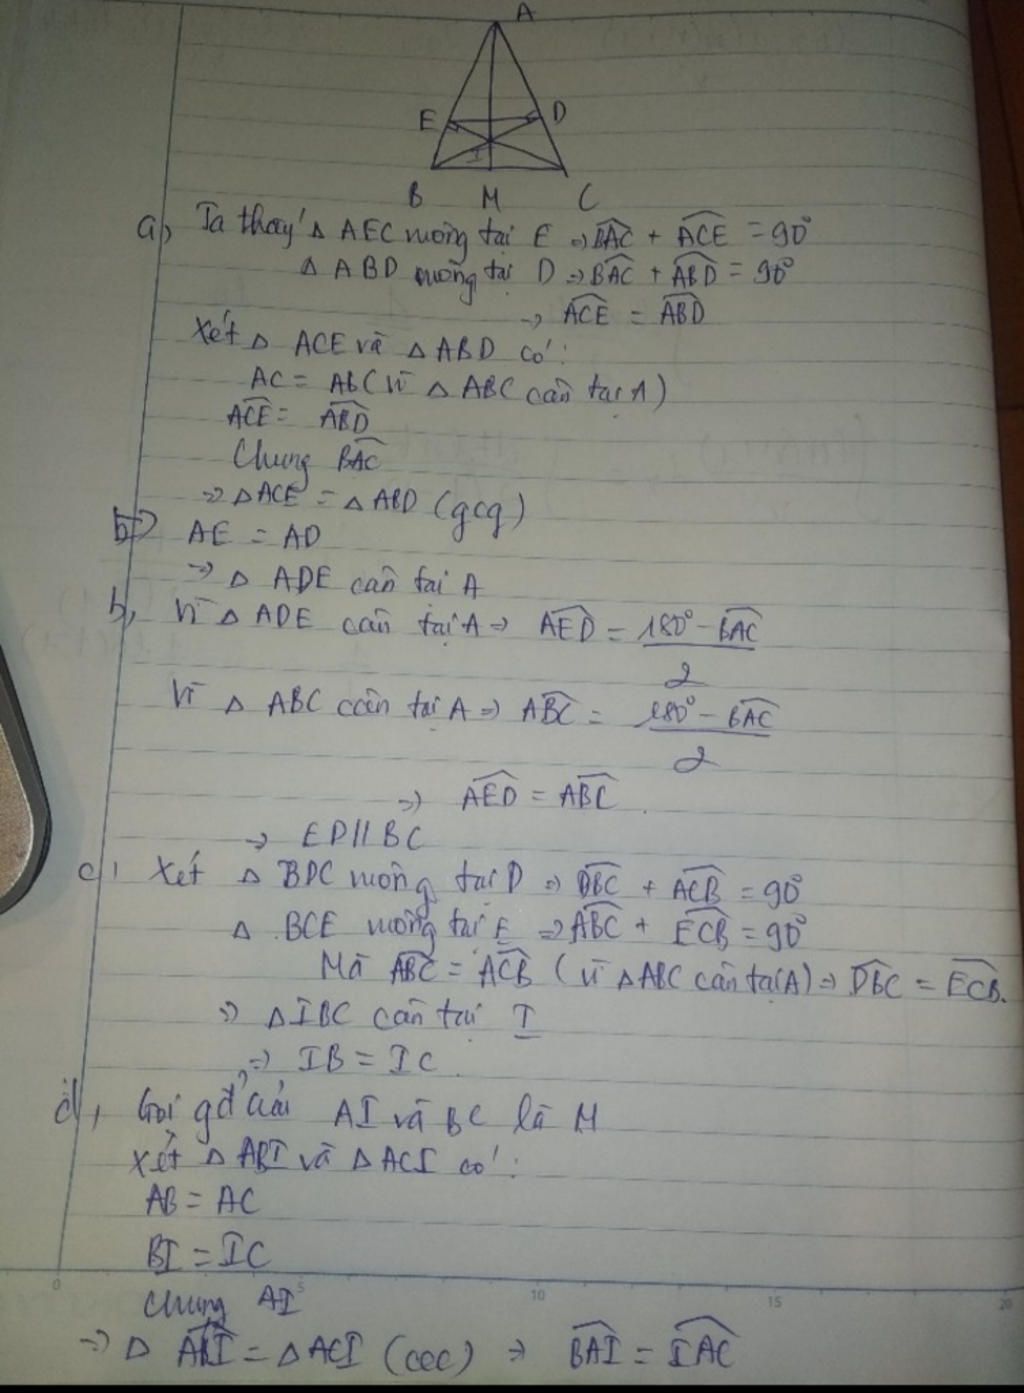 A
E D
I
B M C
a, Ta thấy Δ AEC vuông tại E ⇒ BAC + ACE = 90°
Δ ABD vuông tại D ⇒ BAC + ABD = 90°
→ ACE = ABD
Xét Δ ACE và Δ ABD có:
AC = AB (vì Δ ABC cân tại A)
ACE = ABD
Chung BAC
⇒ Δ ACE = Δ ABD (gcg)
⇒ AE = AD
⇒ Δ ADE cân tại A
b, Vì Δ ADE cân tại A ⇒ AED = 180° - BAC
2
Vì Δ ABC cân tại A ⇒ ABC = 180° - BAC
2
⇒ AED = ABC
→ ED // BC
c, Xét Δ BDC vuông tại D ⇒ DBC + ACB = 90°
Δ BCE vuông tại E ⇒ ABC + ECB = 90°
Mà ABC = ACB (vì Δ ABC cân tại A) ⇒ DBC = ECB.
⇒ Δ IBC cân tại I
⇒ IB = IC.
d, Gọi gđ của AI và BC là M
Xét Δ ABI và Δ ACI có:
AB = AC
BI = IC
0 5 10 15 20
Chung AI
⇒ Δ ABI = Δ ACI (ccc) ⇒ BAI = IAC